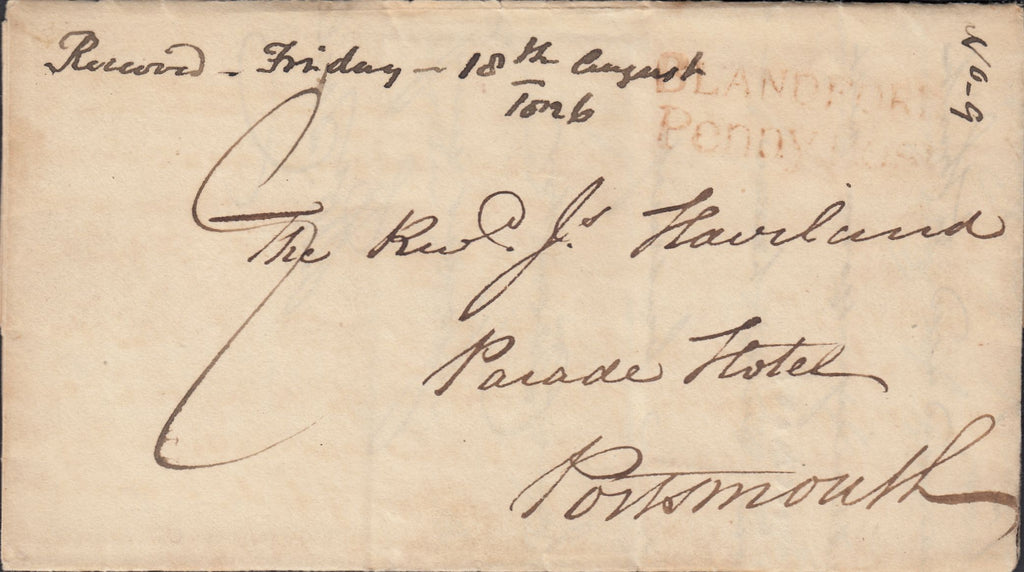 Received - Friday - 18th August
BLANDFORD
Penny Post
No-9
The Revd. Js. Haviland
Parade Hotel
Portsmouth